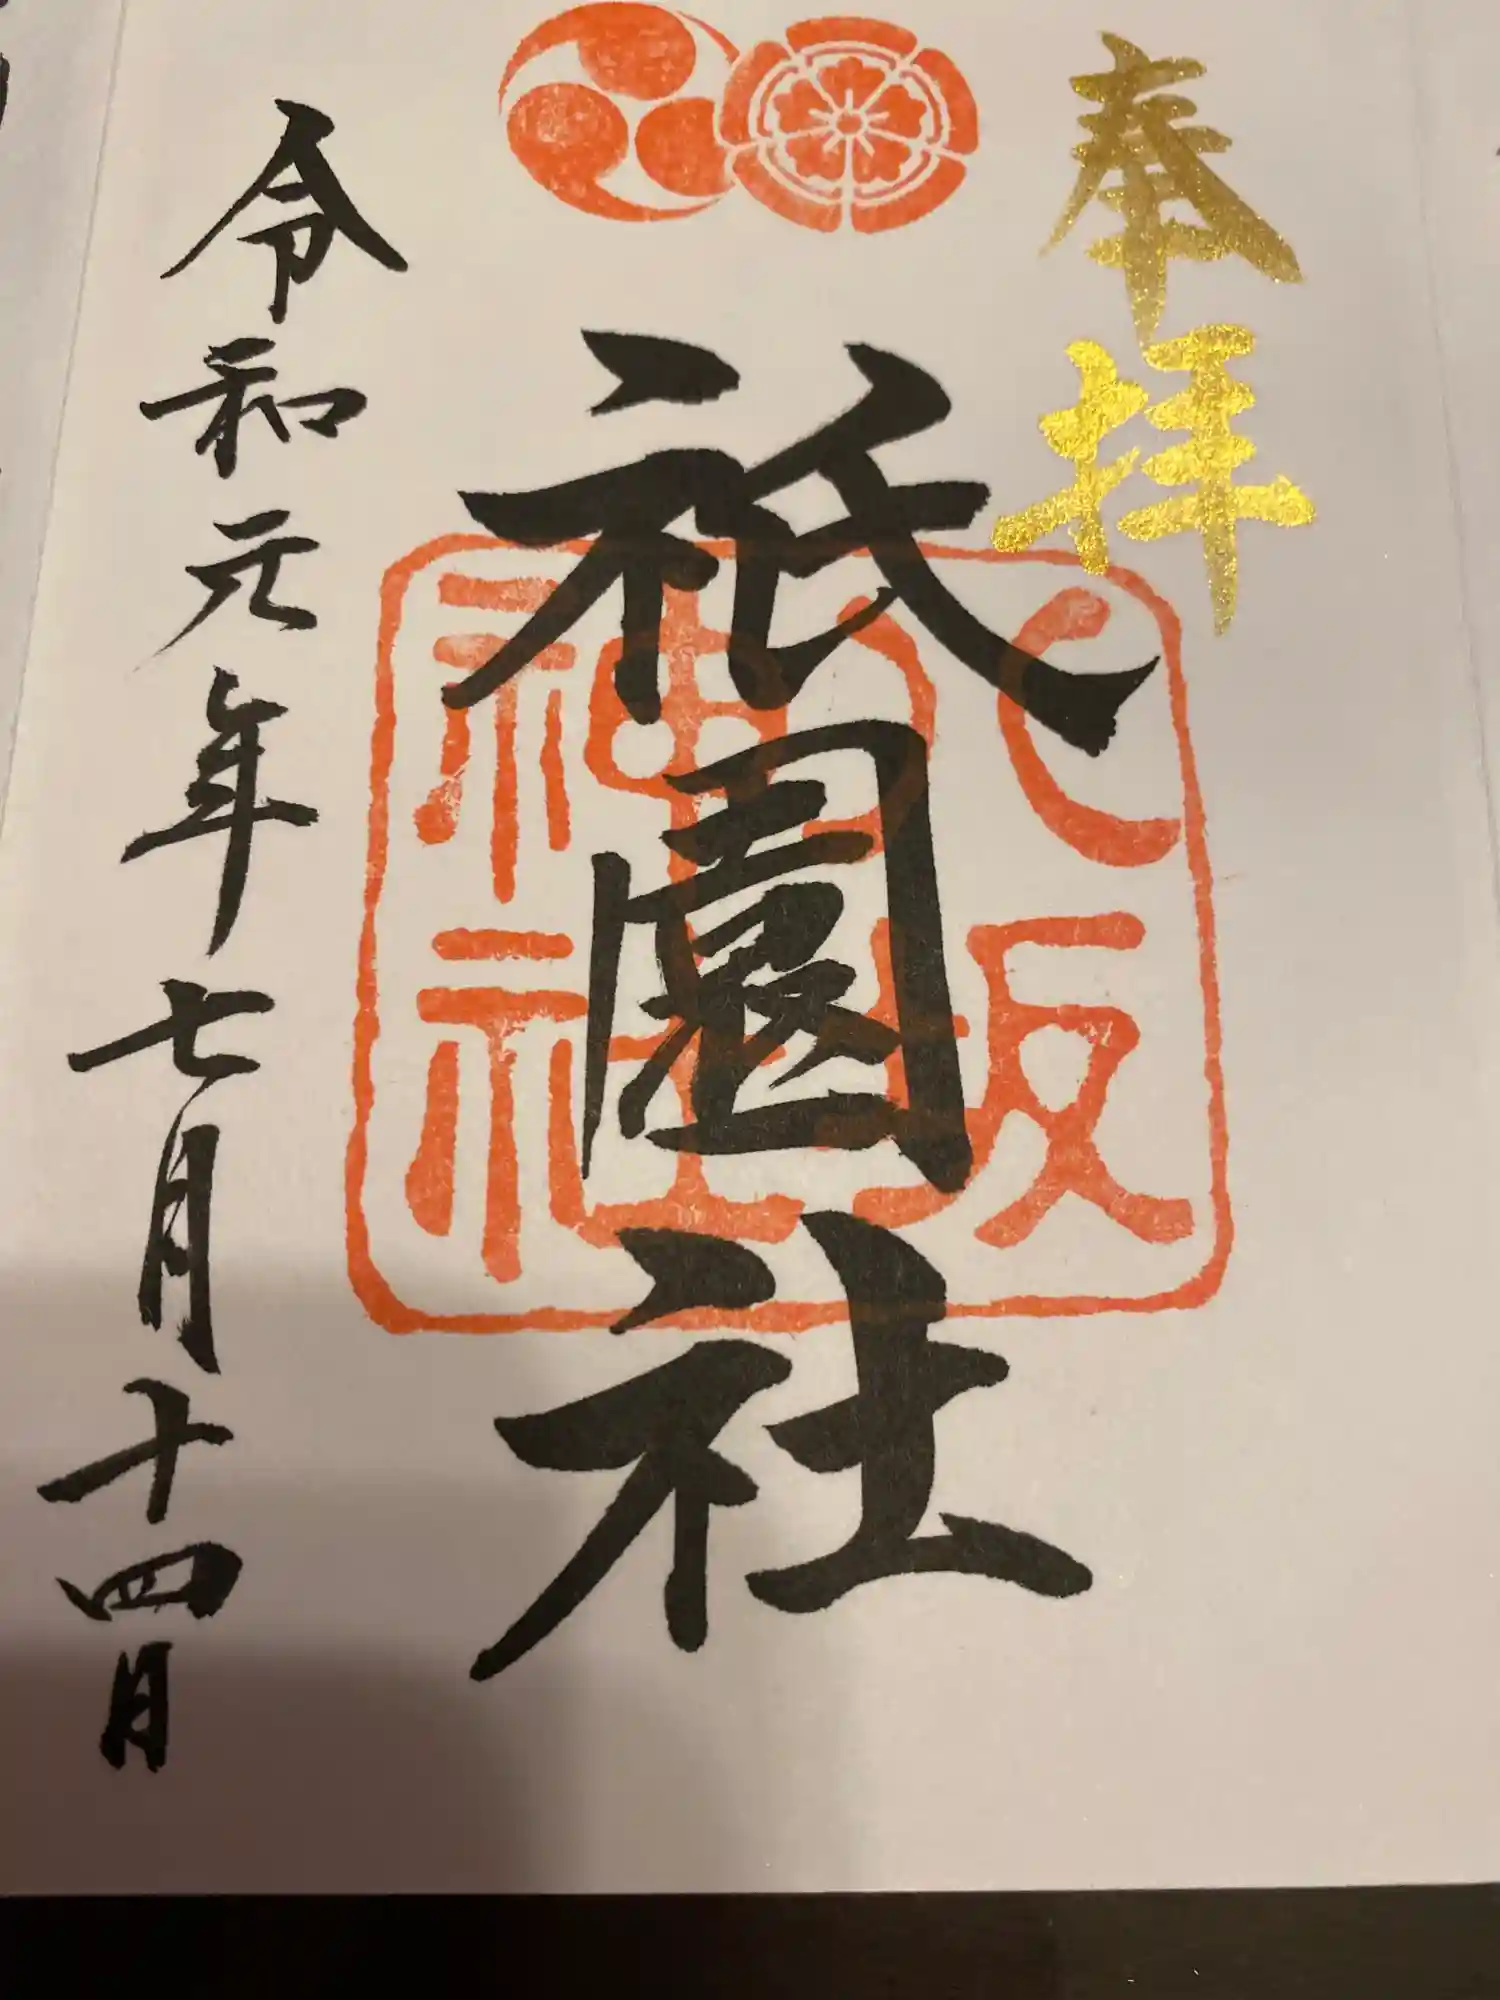 奉拝
祇園社
八坂神社
令和元年七月十四日